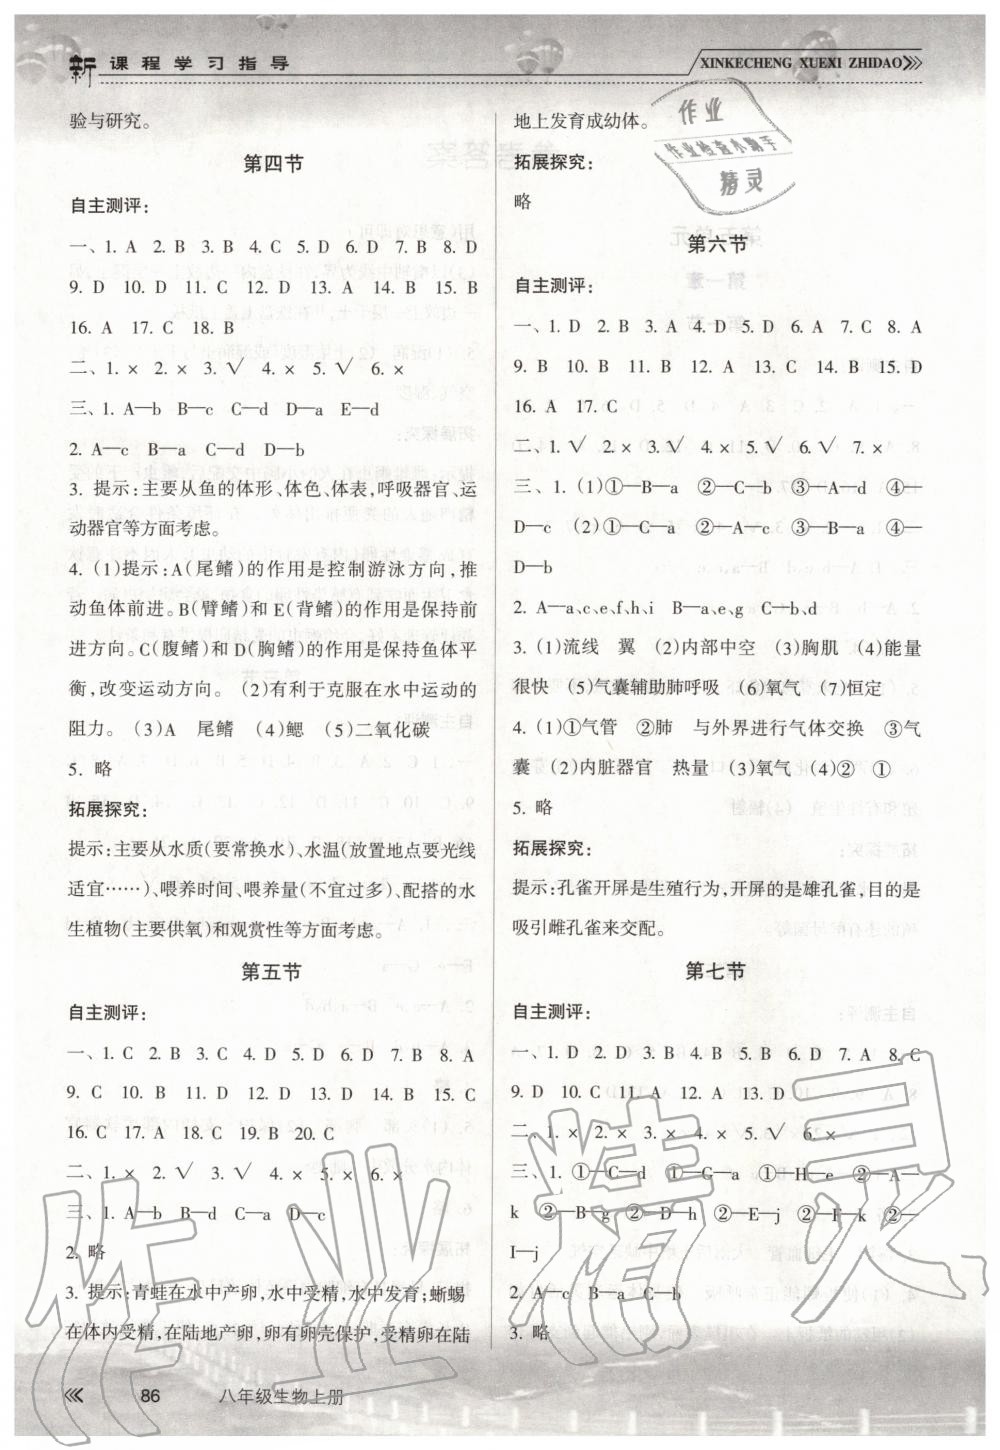 新课程学习指导
XINKECHENG XUEXI ZHIDAO
验与研究。
第四节
自主测评：
一、1. A 2. B 3. B 4. C 5. D 6. D 7. B 8. D
9. D 10. D 11. C 12. D 13. A 14. B 15. B
16. A 17. C 18. B
二、1. × 2. × 3. √ 4. × 5. √ 6. ×
三、1. A—b B—c C—d D—a E—d
2. A—c B—a C—d D—b
3. 提示：主要从鱼的体形、体色、体表，呼吸器官、运
动器官等方面考虑。
4. (1)提示：A(尾鳍)的作用是控制游泳方向，推
动鱼体前进。B(臂鳍)和E(背鳍)的作用是保持前
进方向。C(腹鳍)和D(胸鳍)的作用是保持鱼体平
衡，改变运动方向。 (2)有利于克服在水中运动的
阻力。 (3)A 尾鳍 (4)鳃 (5)二氧化碳
5. 略
拓展探究：
提示：主要从水质(要常换水)、水温(放置地点要光线
适宜……)、喂养时间、喂养量(不宜过多)、配搭的水
生植物(主要供氧)和观赏性等方面考虑。
第五节
自主测评：
一、1. C 2. B 3. C 4. D 5. D 6. D 7. B 8. A
9. C 10. B 11. D 12. D 13. D 14. B 15. C
16. C 17. A 18. C 19. B 20. C
二、1. × 2. √ 3. √ 4. × 5. × 6. ×
三、1. A—b B—d C—a D—c
2. 略
3. 提示：青蛙在水中产卵，水中受精，水中发育；蜥蜴
在体内受精，在陆地产卵，卵有卵壳保护，受精卵在陆
地上发育成幼体。
拓展探究：
略
第六节
自主测评：
一、1. D 2. B 3. A 4. D 5. D 6. A 7. C 8. A
9. B 10. B 11. B 12. A 13. C 14. B 15. D
16. A 17. C
二、1. √ 2. × 3. √ 4. × 5. √ 6. √ 7. ×
三、1. (1)①—B—a ②—C—b ③—A—d ④—
D—c (2)①—C—a ②—A—c ③—B—a ④—
D—b
2. A—a、c、f、h、i B—a、e、g C—b、d
3. (1)流线 翼 (2)内部中空 (3)胸肌 (4)能量
很快 (5)气囊辅助肺呼吸 (6)氧气 (7)恒定
4. (1)①气管 ②肺 与外界进行气体交换 ③气
囊 (2)内脏器官 热量 (3)氧气 (4)② ①
5. 略
拓展探究：
提示：孔雀开屏是生殖行为，开屏的是雄孔雀，目的是
吸引雌孔雀来交配。
第七节
自主测评：
一、1. D 2. D 3. B 4. B 5. B 6. D 7. A 8. C
9. D 10. C 11. A 12. A 13. D 14. A
二、1. × 2. × 3. × 4. × 5. √ 6. ×
三、1. ①—C—d ①—G—a ①—H—e ②—A—
k ②—B—g ②—D—h ②—E—j ②—F—k ②—
I—j
2. A—c B—a C—b
3. 略
86 八年级生物上册
作业
作业检查小助手
精灵
作业精灵